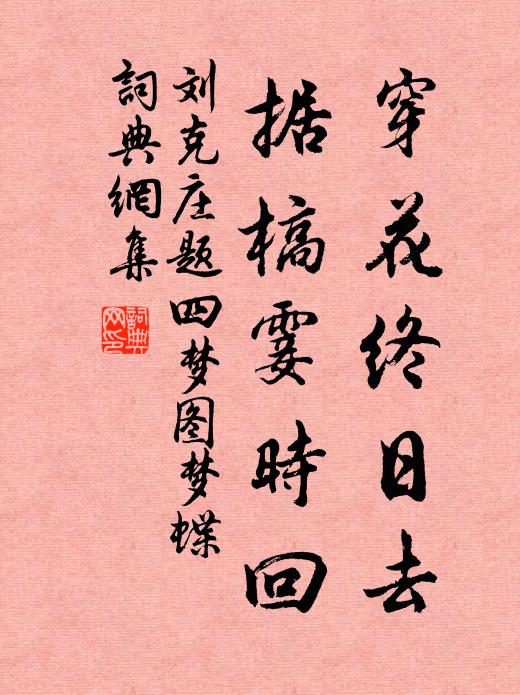 穿花终日去
据槁霎時回
刘克庄题四梦图梦蝶
詞典網集
詞典
网印